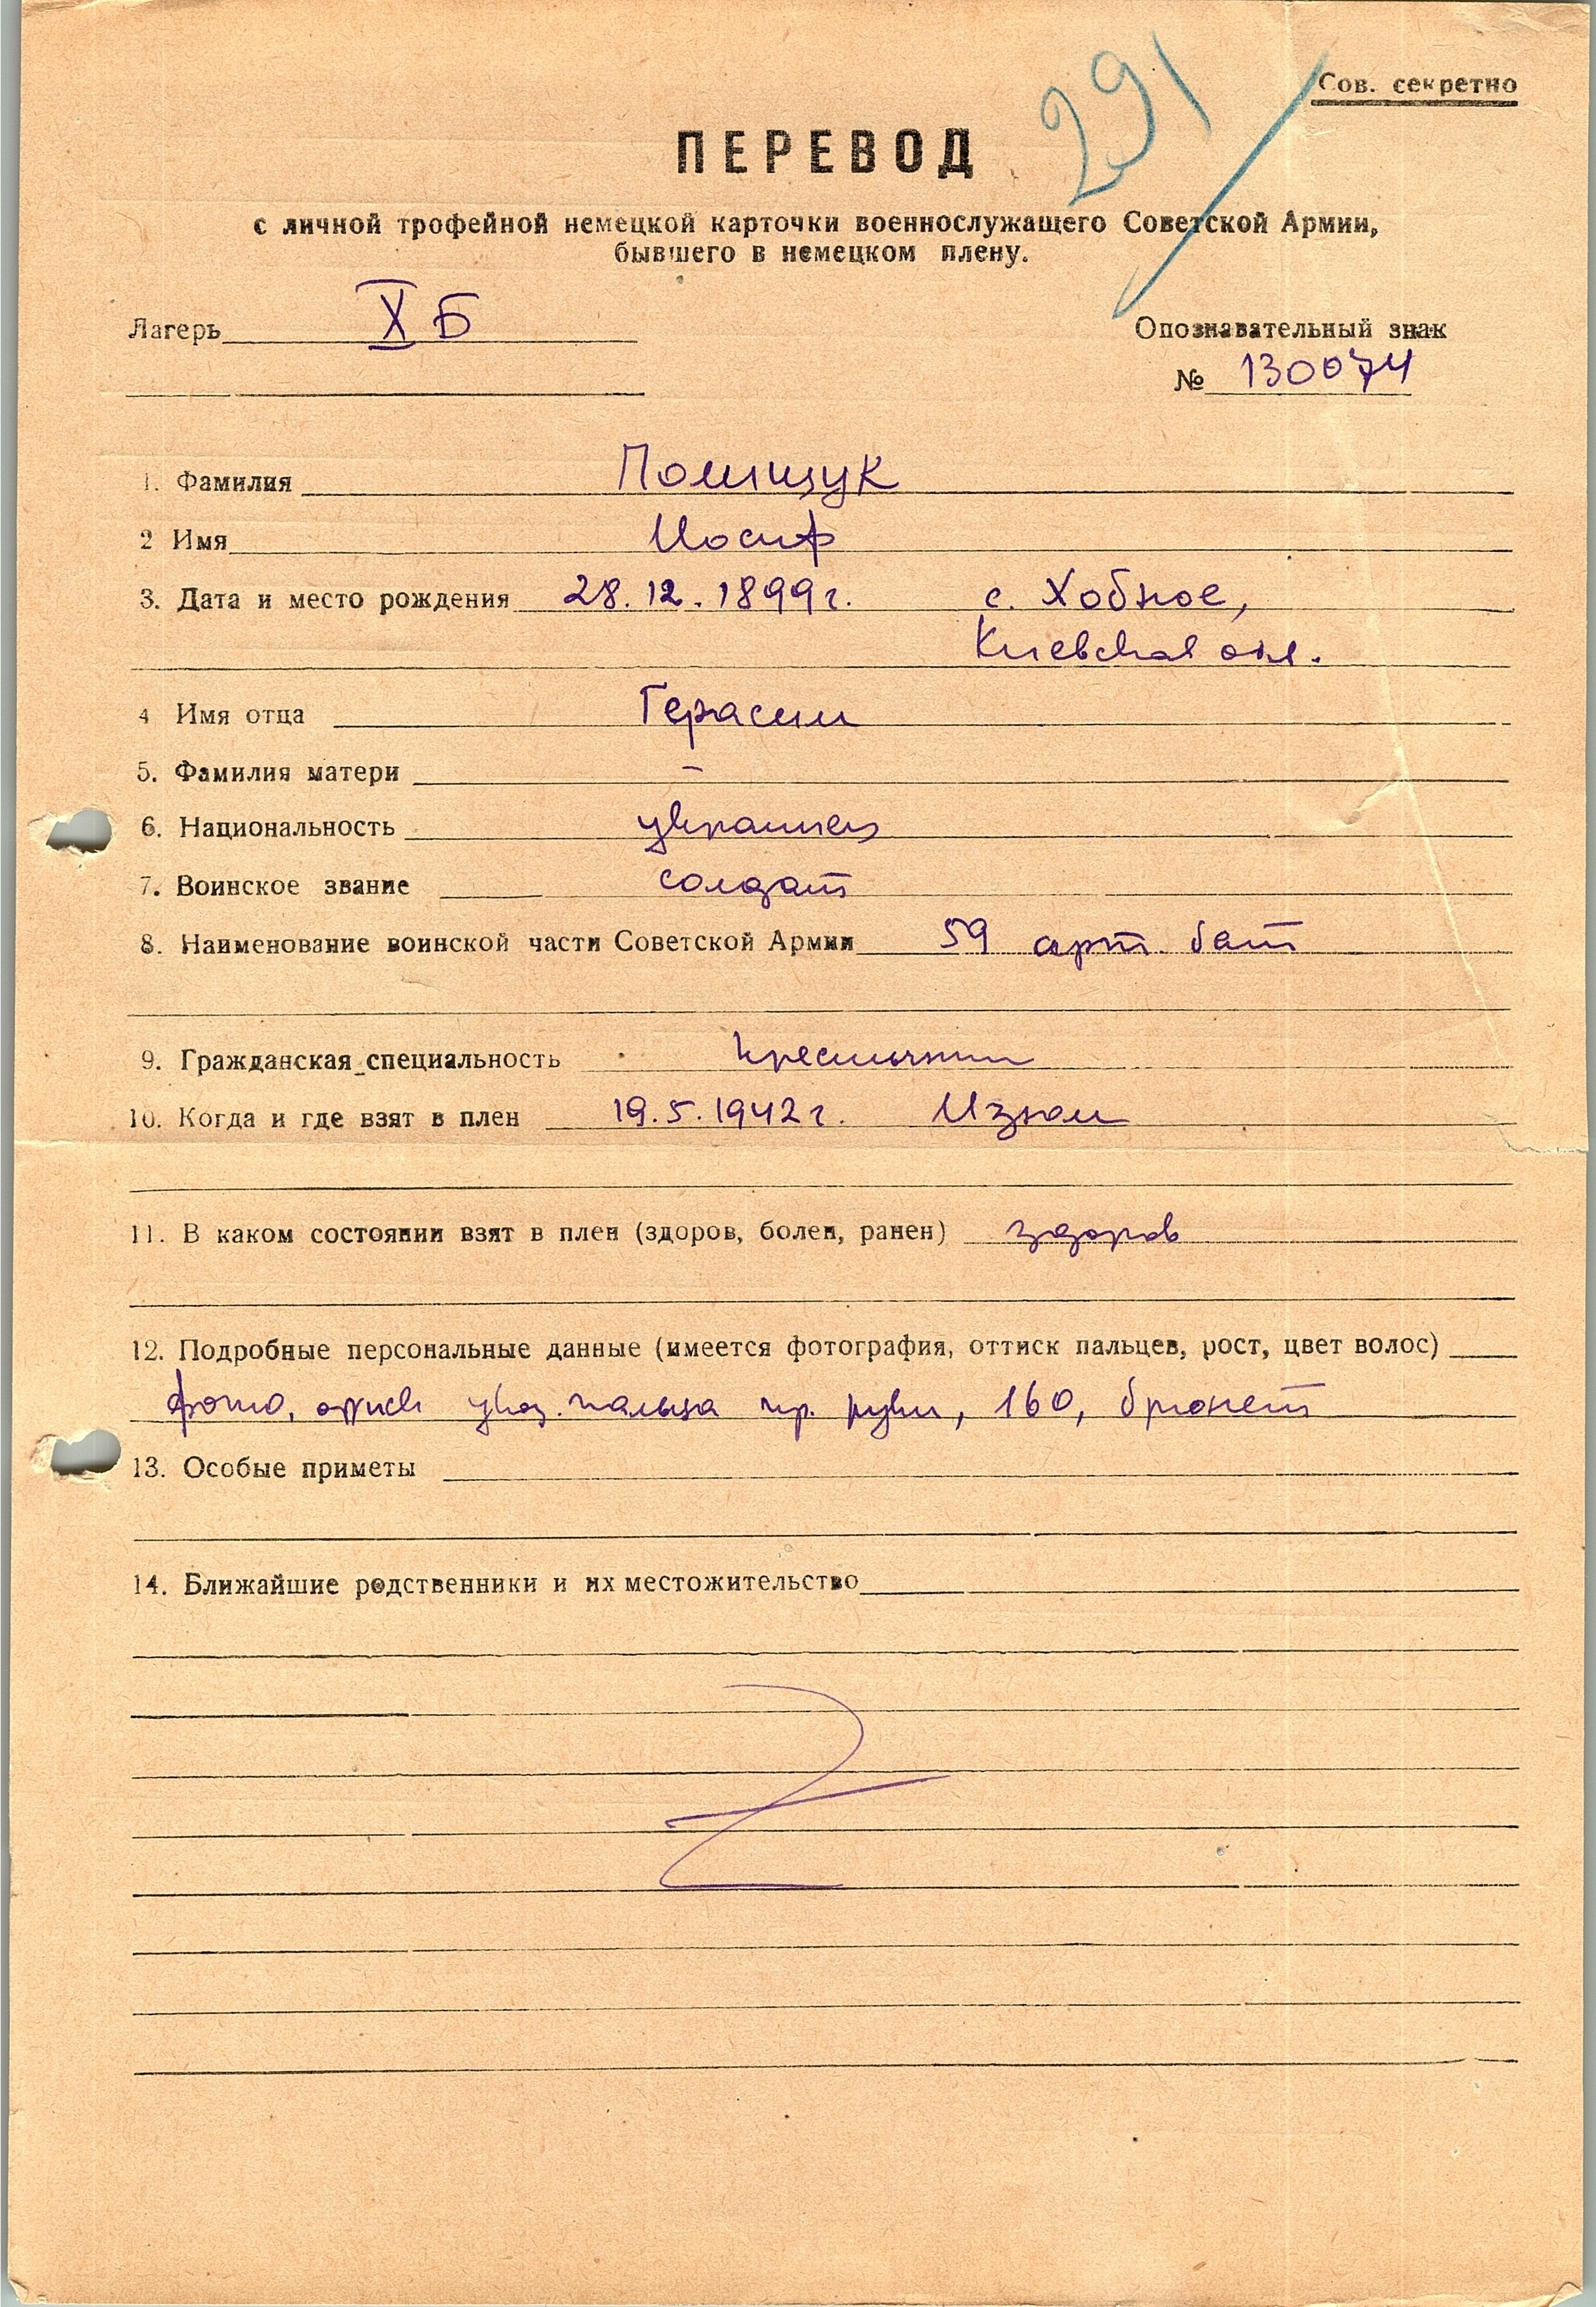 291
Сов. секретно
ПЕРЕВОД
с личной трофейной немецкой карточки военнослужащего Советской Армии,
бывшего в немецком плену.
Лагерь X Б
Опознавательный знак
№ 130074
1. Фамилия Полищук
2 Имя Иосиф
3. Дата и место рождения 28.12.1899г. с. Хобное,
Киевская обл.
4 Имя отца Герасим
5. Фамилия матери –
6. Национальность украинец
7. Воинское звание солдат
8. Наименование воинской части Советской Армии 59 арт. бат
9. Гражданская специальность крестьянин
10. Когда и где взят в плен 19.5.1942г. Изюм
11. В каком состоянии взят в плен (здоров, болен, ранен) здоров
12. Подробные персональные данные (имеется фотография, оттиск пальцев, рост, цвет волос)
фото, указ. пальца пр. руки, 160, брюнет
13. Особые приметы
14. Ближайшие родственники и их местожительство